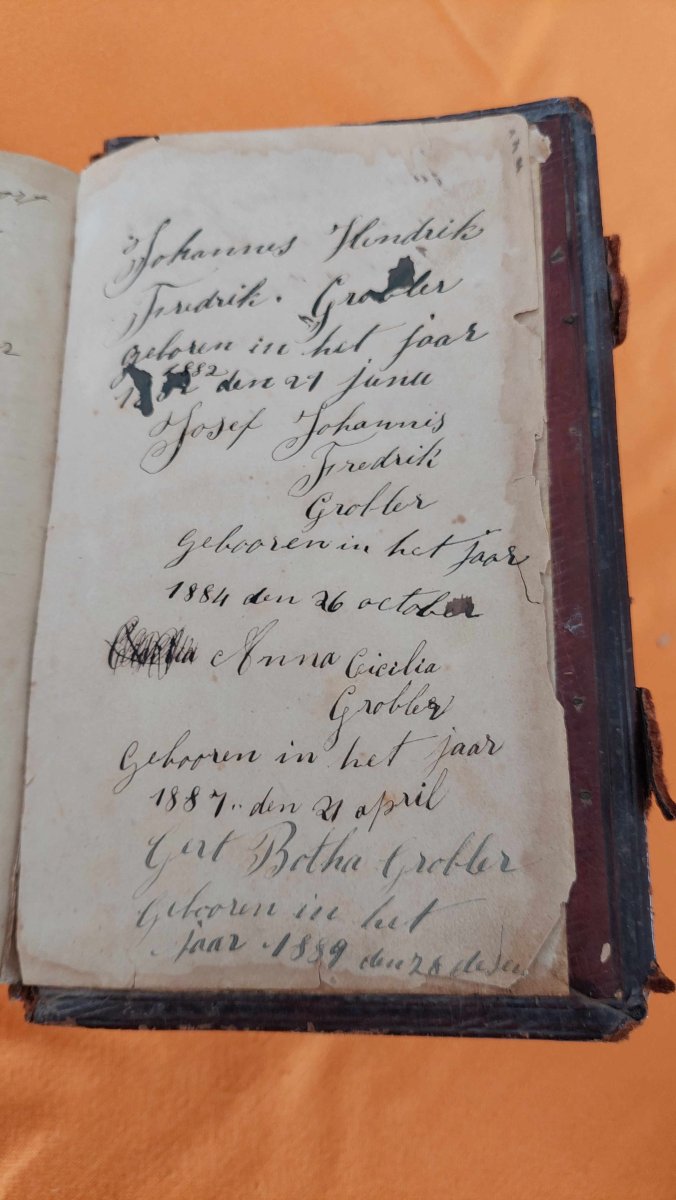 Johannes Hendrik
Fredrik. Grobler
geboren in het jaar
1882
1882 den 21 junu
Josef Johannis
Fredrik
Grobler
Gebooren in het jaar
1884 den 26 october
Anna Cicilia
Grobler
Gebooren in het jaar
1887.. den 21 april
Gert Botha Grobler
Gebooren in het
jaar 1889 den 28 desem